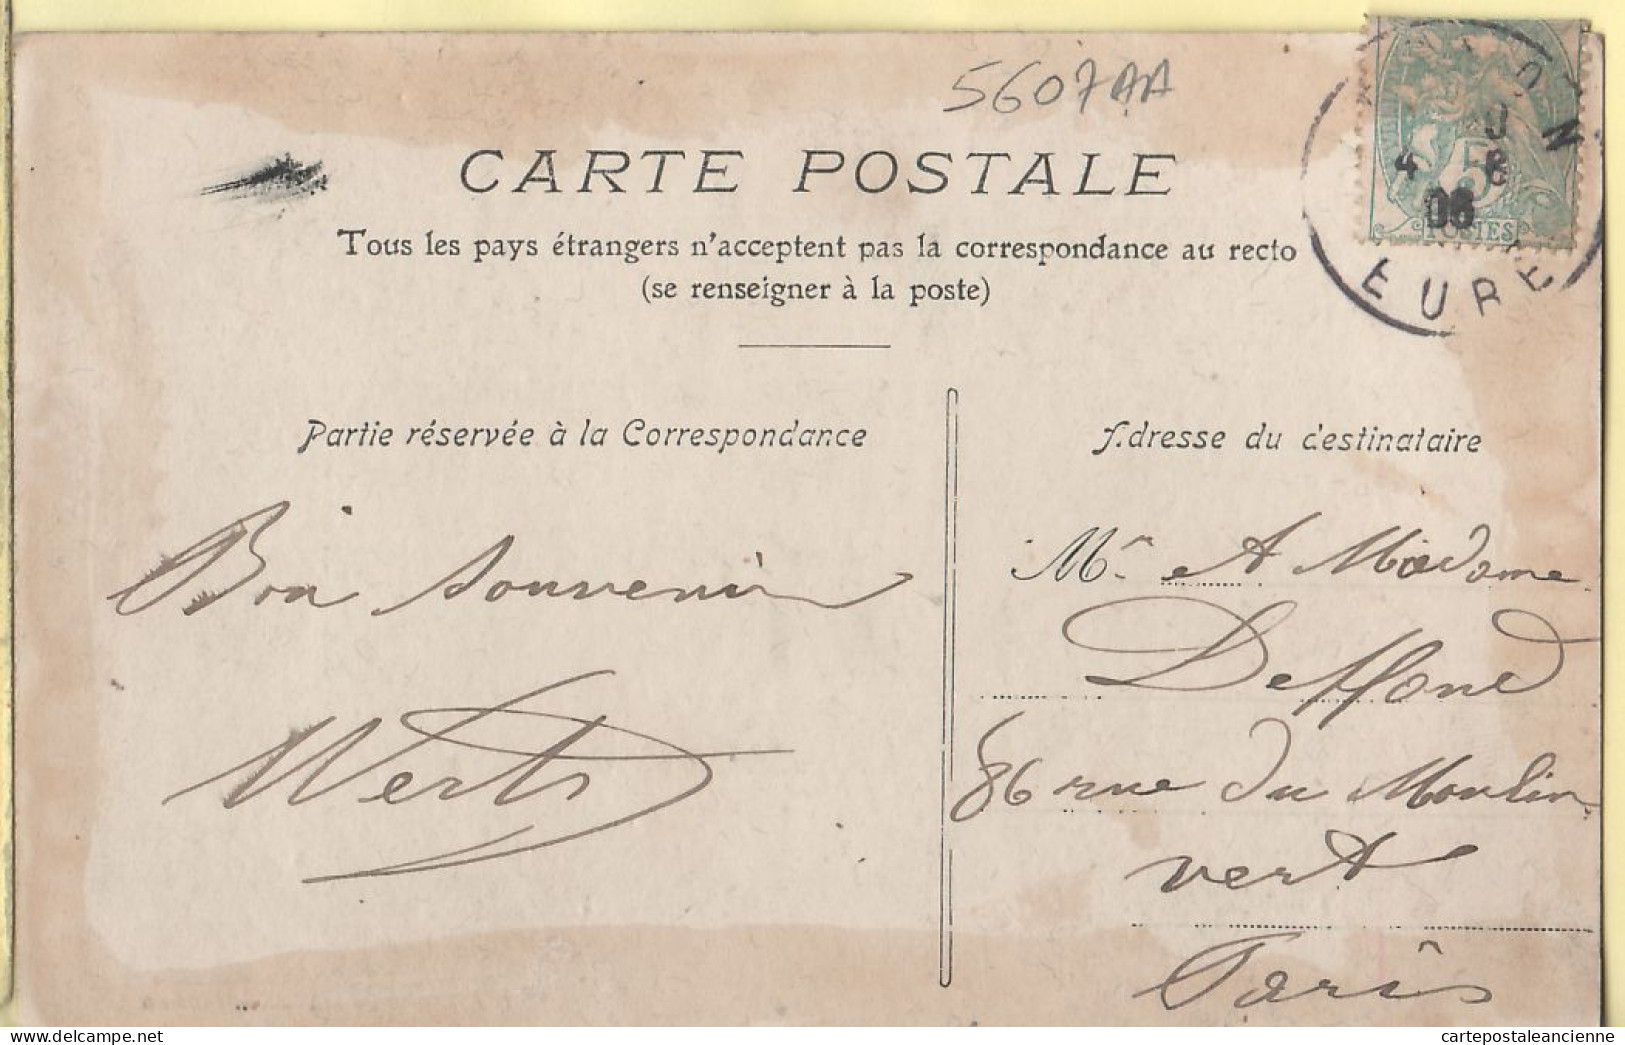 5607AA
CARTE POSTALE
Tous les pays étrangers n'acceptent pas la correspondance au recto
(se renseigner à la poste)
Partie réservée à la Correspondance
Adresse du destinataire
Bon souvenir
Werts
Mr et Madame
Deffond
86 rue du Moulin
vert
Paris
4 8
06
EURE
5
POSTES
delcampe.net
cartepostaleancienne